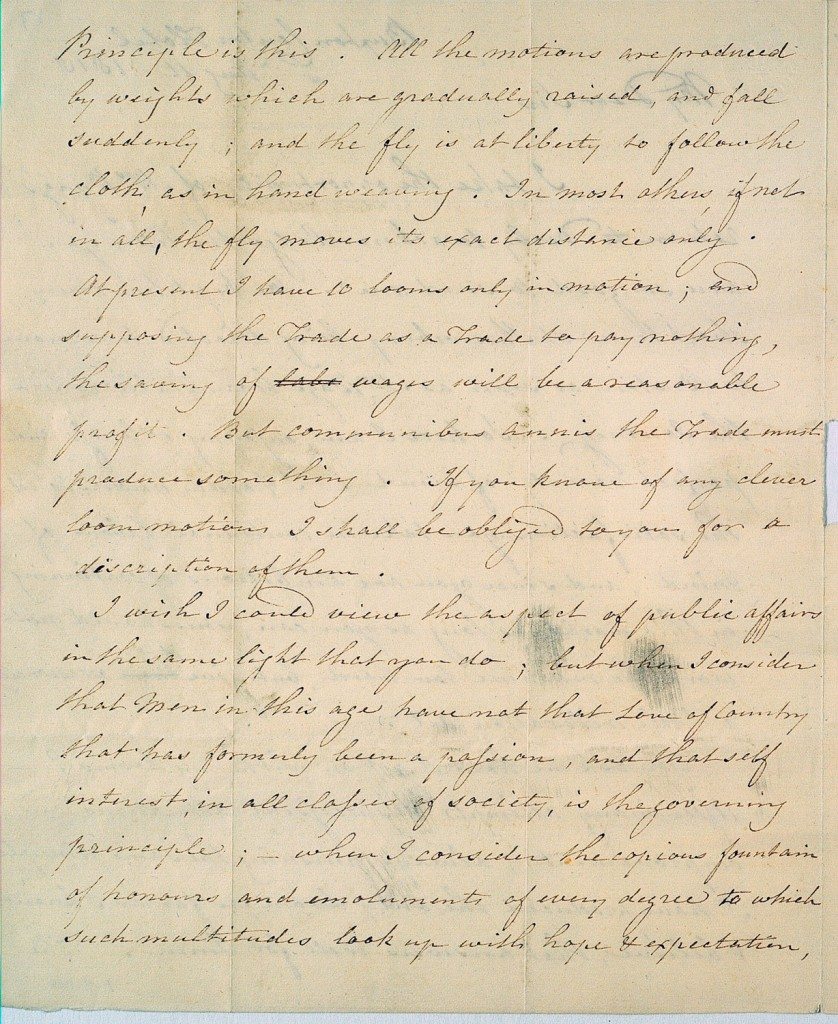 Principle is this. All the motions are produced
by weights which are gradually raised and fall
suddenly; and the fly is at liberty to follow the
cloth, as in hand weaving. In most others, if not
in all, the fly moves its exact distance only.
At present I have 10 looms only in motion; and
supposing the Trade as a Trade to pay nothing,
the saving of labr wages will be a reasonable
profit. But communibus annis the Trade must
produce something. If you know of any clever
loom motions I shall be obliged to you for a
discription of them.
I wish I could view the aspect of public affairs
in the same light that you do; but when I consider
that Men in this age have not that Love of Country
that has formerly been a passion, and that self
interest, in all classes of society, is the governing
principle; – when I consider the copious fountain
of honours and emoluments of every degree to which
such multitudes look up with hope & expectation,